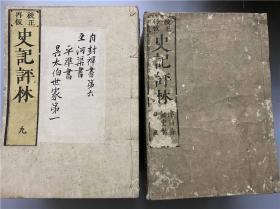 校正
再板
史記評林
九
自封禅書第六
至河渠書
平準書
吳太伯世家第一
校正
再板
史記評林